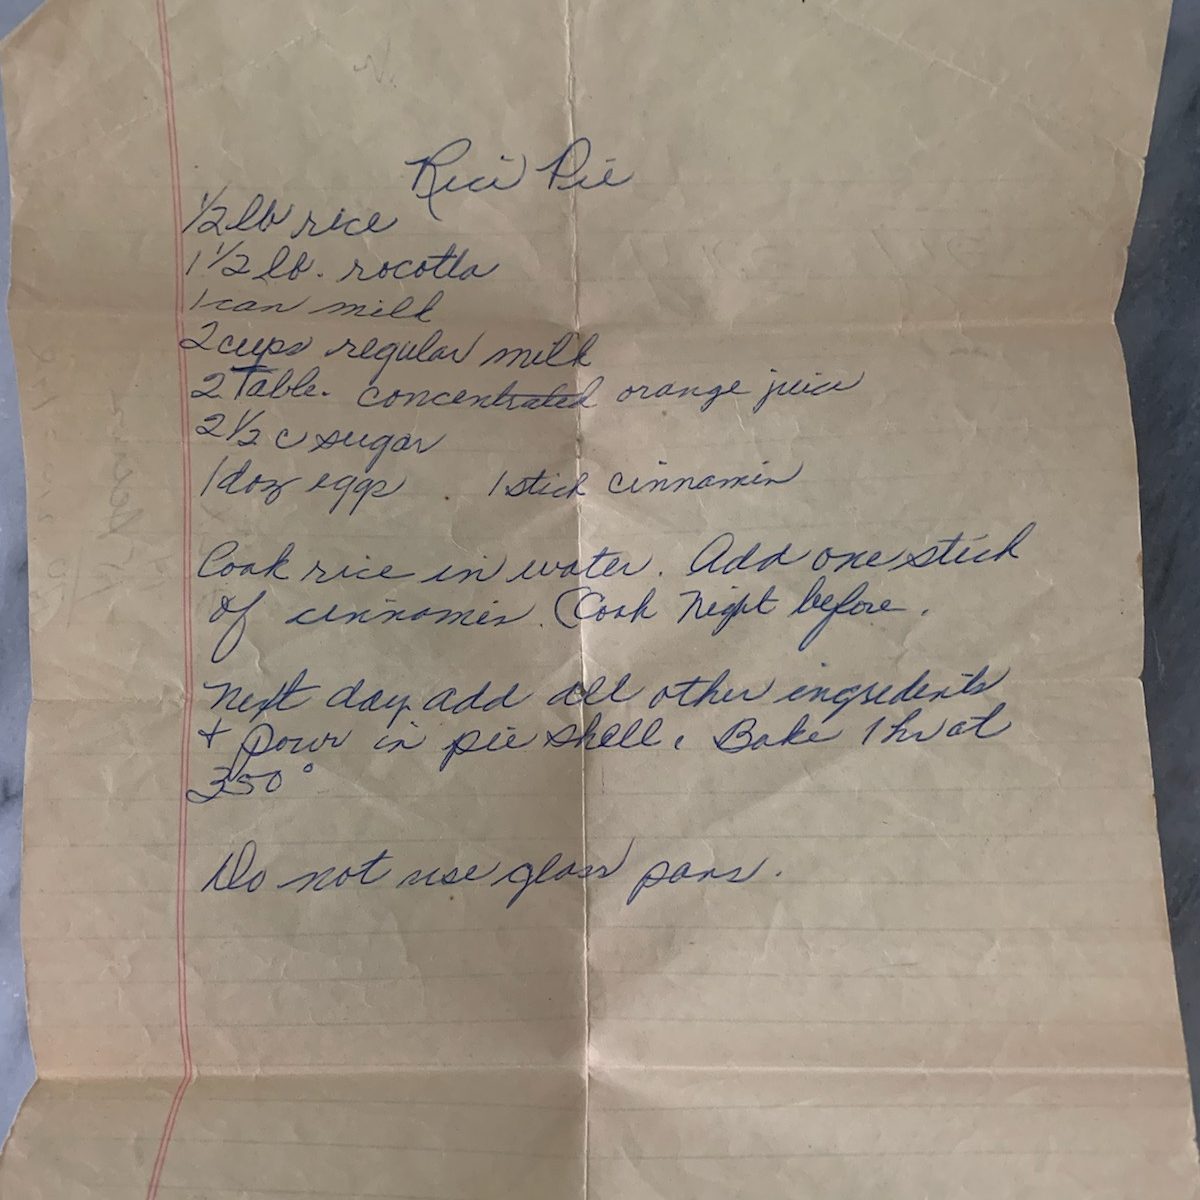 Rice Pie
1/2 lb rice
1 1/2 lb. rocotta
1 can milk
2 cups regular milk
2 Table. concentrated orange juice
2 1/2 c sugar
1 doz eggs 1 stick cinnamin
Cook rice in water. Add one stick
of cinnamin. Cook Night before.
Next day add all other ingredents
+ pour in pie shell. Bake 1 hr at
350°
Do not use glass pans.